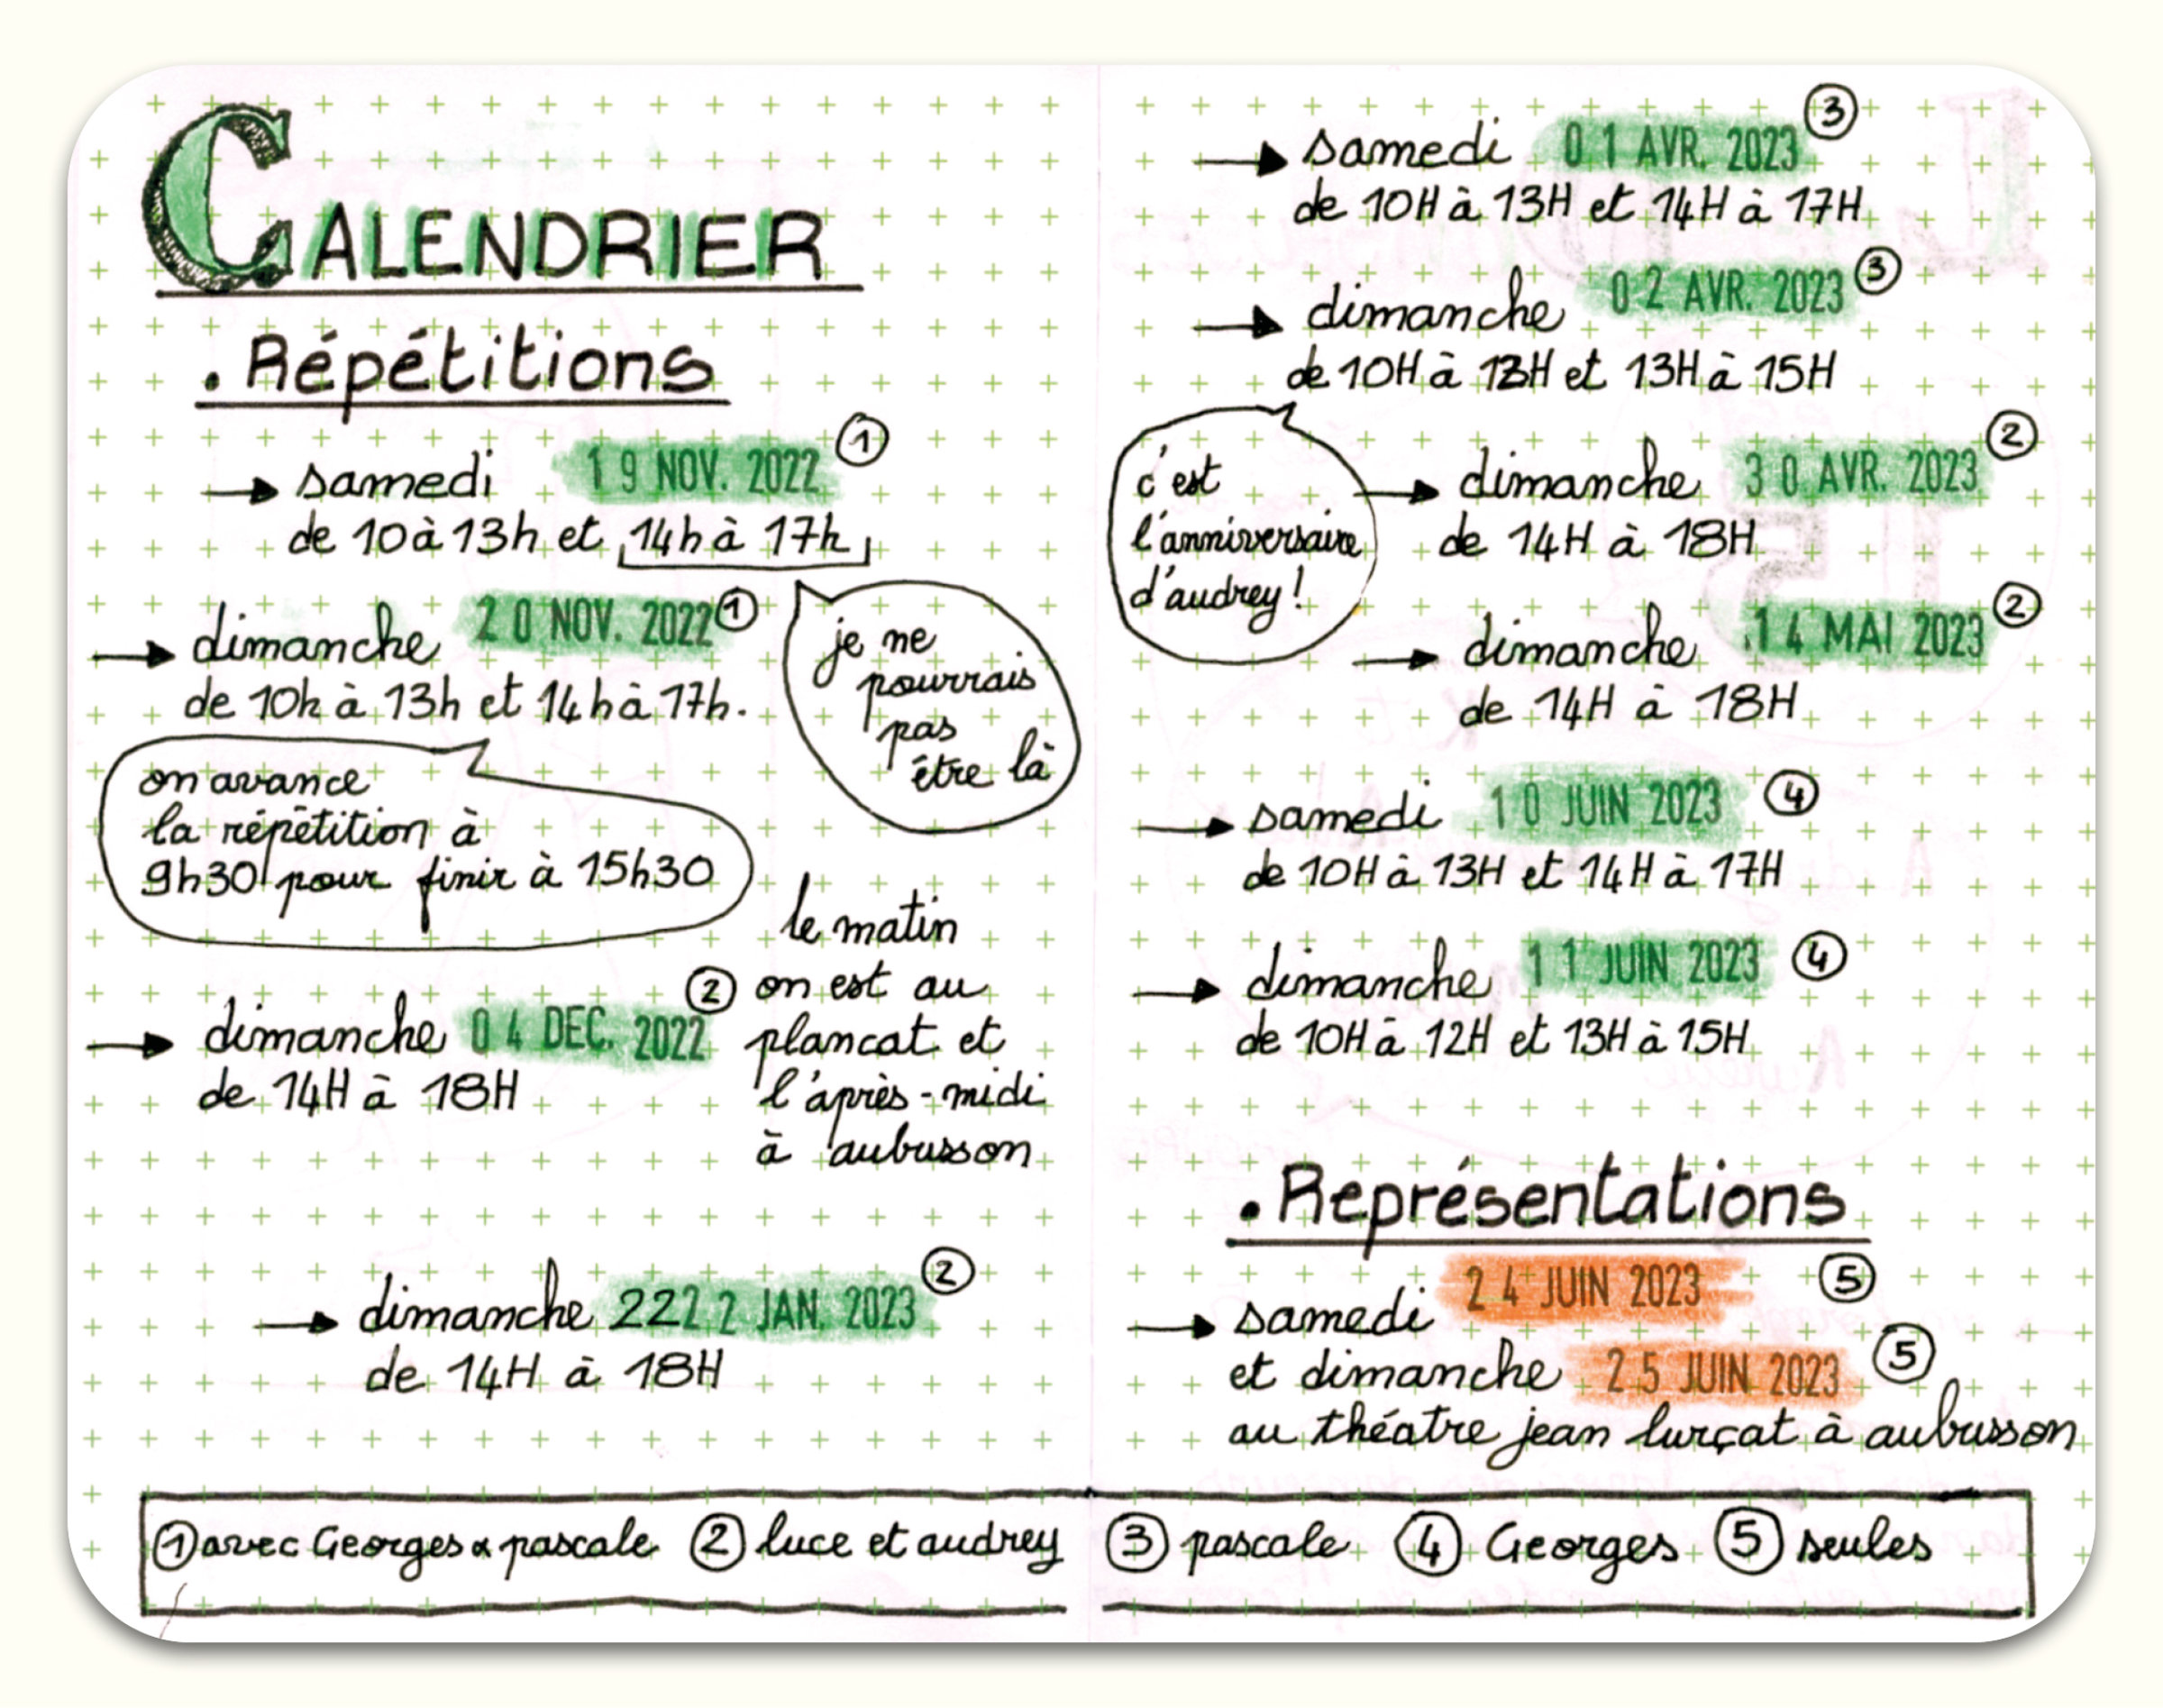 CALENDRIER
. Répétitions
→ samedi 19 NOV. 2022 ①
de 10 à 13h et 14h à 17h
je ne
pourrais
pas
être là
→ dimanche 20 NOV. 2022 ①
de 10h à 13h et 14h à 17h.
on avance
la répétition à
9h30 pour finir à 15h30
→ dimanche 04 DEC. 2022 ②
de 14H à 18H
le matin
on est au
plancat et
l'après-midi
à aubusson
→ dimanche 2222 JAN. 2023 ②
de 14H à 18H
→ samedi 01 AVR. 2023 ③
de 10H à 13H et 14H à 17H
→ dimanche 02 AVR. 2023 ③
de 10H à 12H et 13H à 15H
c'est
l'anniversaire
d'audrey !
→ dimanche 30 AVR. 2023 ②
de 14H à 18H
→ dimanche 14 MAI 2023 ②
de 14H à 18H
→ samedi 10 JUIN 2023 ④
de 10H à 13H et 14H à 17H
→ dimanche 11 JUIN 2023 ④
de 10H à 12H et 13H à 15H
. Représentations
→ samedi 24 JUIN 2023 ⑤
et dimanche 25 JUIN 2023 ⑤
au théatre jean lurçat à aubusson
① avec Georges & pascale ② luce et audrey ③ pascale ④ Georges ⑤ seules